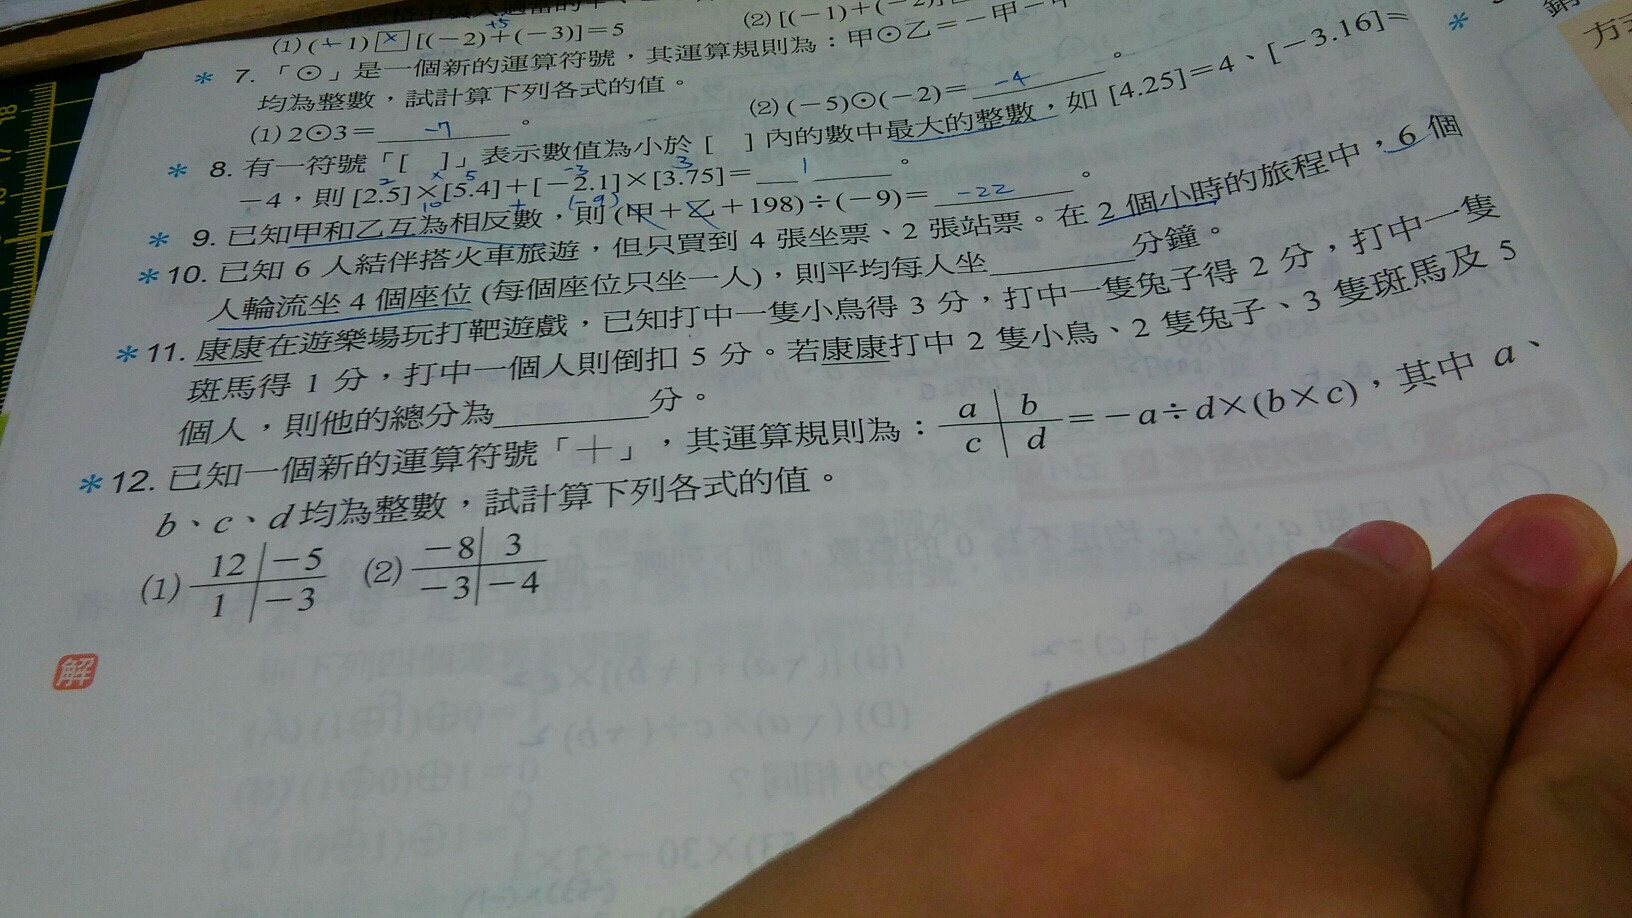 (1) (+1) × [(-2)+(-3)]=5
+5
(2) [(-1)+(-2)]
* 7. 「⊙」是一個新的運算符號，其運算規則為：甲⊙乙=-甲-
均為整數，試計算下列各式的值。
(1) 2⊙3= -7 。
(2) (-5)⊙(-2)= -4 。
* 8. 有一符號「[ ]」表示數值為小於 [ ] 內的數中最大的整數，如 [4.25]=4、[-3.16]=
-4，則 [2.5]×[5.4]+[-2.1]×[3.75]= 1 。
2 × 5 -3 3
10 + (-9)
* 9. 已知甲和乙互為相反數，則 (甲+乙+198)÷(-9)= -22 。
*10. 已知 6 人結伴搭火車旅遊，但只買到 4 張坐票、2 張站票。在 2 個小時的旅程中，6 個
人輪流坐 4 個座位 (每個座位只坐一人)，則平均每人坐________分鐘。
*11. 康康在遊樂場玩打靶遊戲，已知打中一隻小鳥得 3 分，打中一隻兔子得 2 分，打中一隻
斑馬得 1 分，打中一個人則倒扣 5 分。若康康打中 2 隻小鳥、2 隻兔子、3 隻斑馬及 5
個人，則他的總分為________分。
*12. 已知一個新的運算符號「十」，其運算規則為：a b c d =-a÷d×(b×c)，其中 a、
b、c、d 均為整數，試計算下列各式的值。
(1) 12 -5 1 -3 (2) -8 3 -3 -4
解
方